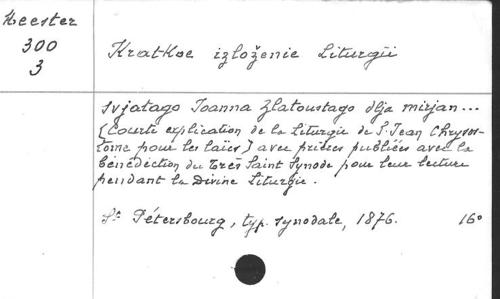 Heester
300
3
Kratkoe izloženie Liturgii
svjatago Ioanna Zlatoustago dlja mirjan...
[Courte explication de la Liturgie de S. Jean Chrysos-
tome pour les laïcs] avec prières publiées avec la
bénédiction du Très Saint Synode pour leur lecture
pendant la Divine Liturgie.
St Pétersbourg, typ. synodale, 1876. 16°